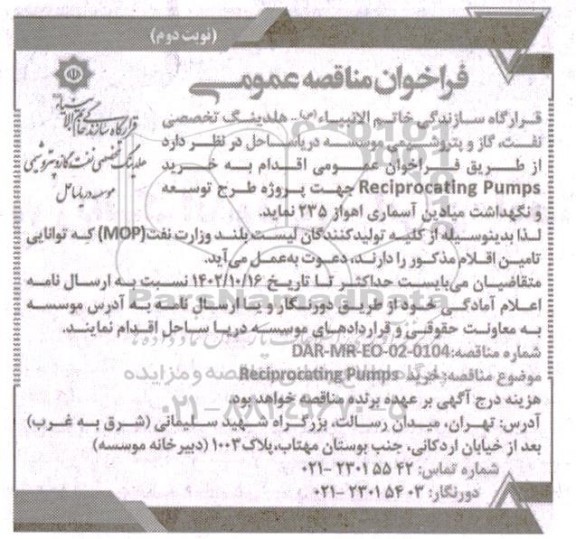 (نوبت دوم)
فراخوان مناقصه عمومی
قرارگاه سازندگی خاتم الانبیاء(ص)- هلدینگ تخصصی
نفت، گاز و پتروشیمی موسسه دریاساحل در نظر دارد
از طریق فراخوان عمومی اقدام به خرید
Reciprocating Pumps جهت پروژه طرح توسعه
و نگهداشت میادین آسماری اهواز ۲۳۵ نماید.
لذا بدینوسیله از کلیه تولیدکنندگان لیست بلند وزارت نفت(MOP) که توانایی
تامین اقلام مذکور را دارند، دعوت به‌عمل می‌آید.
متقاضیان می‌بایست حداکثر تا تاریخ ۱۴۰۲/۱۰/۱۶ نسبت به ارسال نامه
اعلام آمادگی خود از طریق دورنگار و یا ارسال نامه به آدرس موسسه
به معاونت حقوقی و قراردادهای موسسه دریا ساحل اقدام نمایند.
شماره مناقصه:DAR-MR-EO-02-0104
موضوع مناقصه: خرید Reciprocating Pumps
هزینه درج آگهی بر عهده برنده مناقصه خواهد بود.
آدرس: تهران، میدان رسالت، بزرگراه شهید سلیمانی (شرق به غرب)
بعد از خیابان اردکانی، جنب بوستان مهتاب،پلاک۱۰۰۳ (دبیرخانه موسسه)
شماره تماس: ۴۲ ۵۵ ۲۳۰۱ -۰۲۱
دورنگار: ۰۳ ۵۴ ۲۳۰۱ -۰۲۱
قرارگاه سازندگی خاتم الانبیاء
هلدینگ تخصصی نفت، گاز و پتروشیمی
موسسه دریا ساحل
ParsNamadData
۰۲۱-۸۸۳۴۹۶۷۰-۵